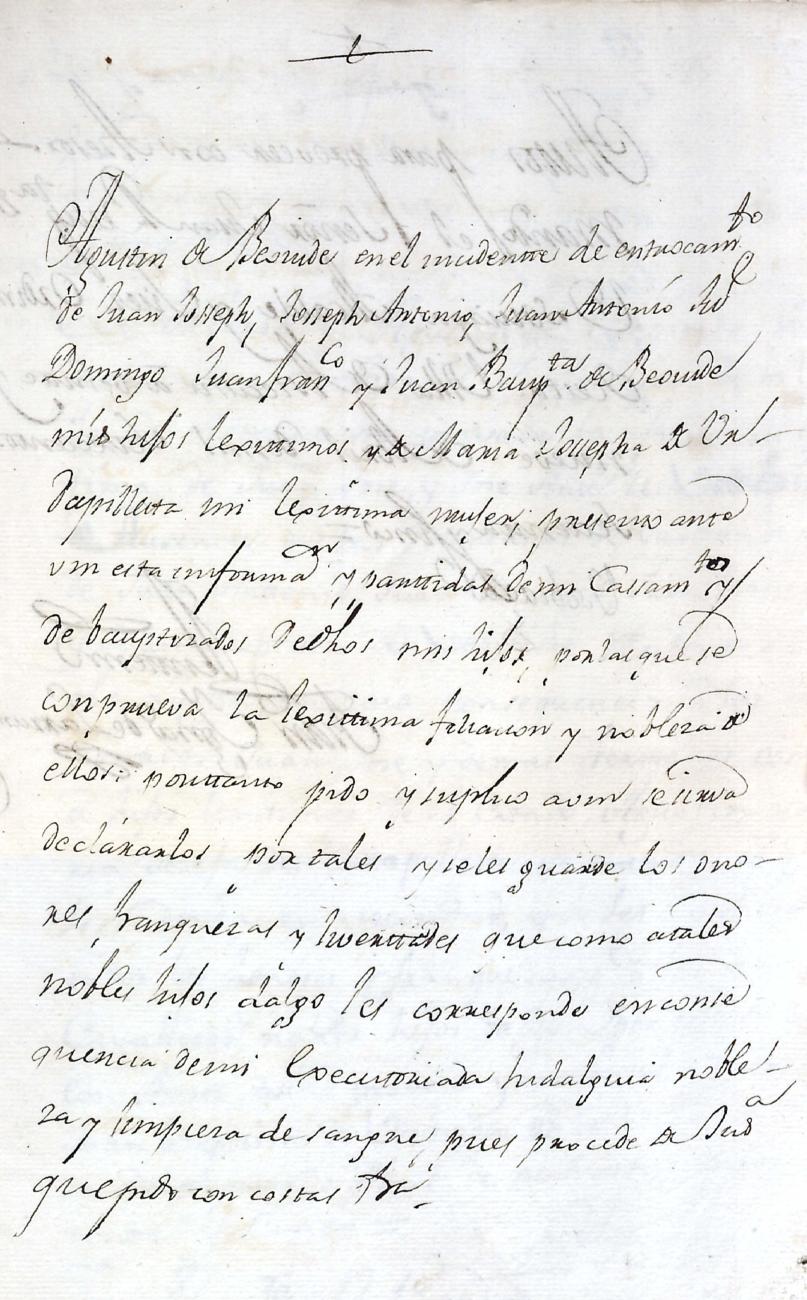 Agustin de Beovide en el incidentte de entrocam.to
de Juan Josseph, Josseph Antonio, Juan Antonio
Domingo Juanfran.co y Juan Baup.ta de Beovide
mis hijos lexittimos y de Maria Jossepha de Vr-
dapilleta mi lexittima muger, presento ante
vm esta informa.on y parttidas de mi Cassam.to y
de bauptizados de dhos mis hijos, por las que se
conprueva la lexittima filiacion y nobleza de
ellos: porttanto pido y suplico a vm se sirva
declararlos por tales y seles guarde los ono-
res, franquezas y livertades que como a tales
nobles hijos dalgo les corresponde en conse
quencia de mi Executoriada hidalguia noble-
za y limpieza de sangre, pues procede de Jus.a
que pido con costas